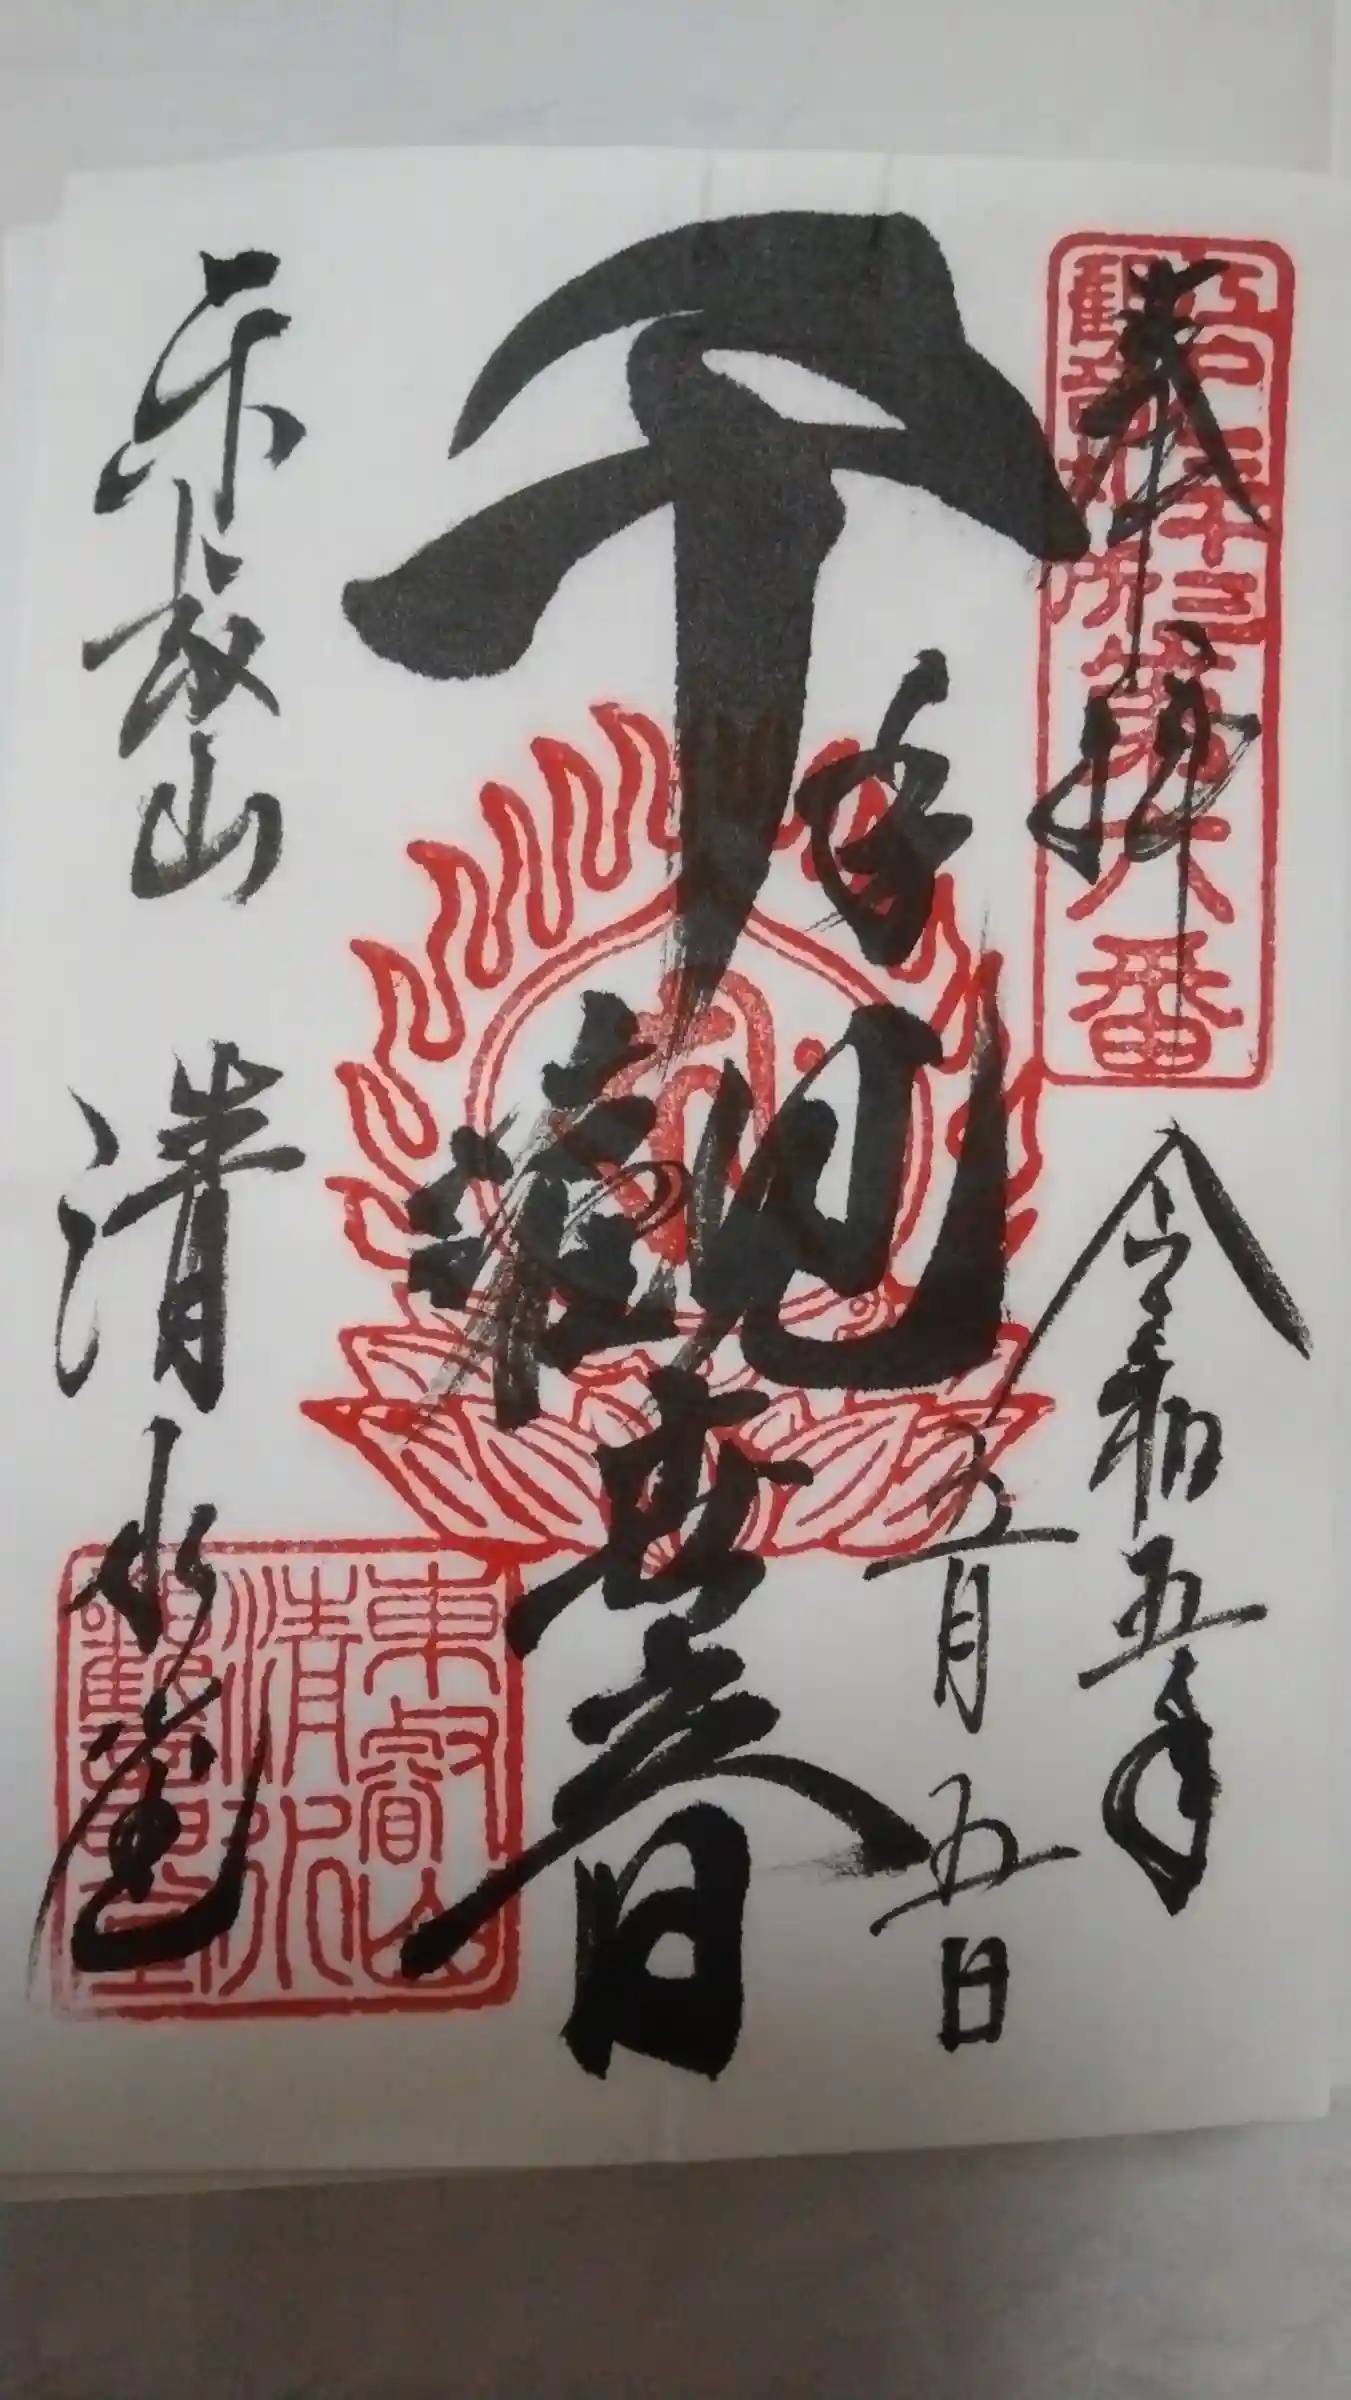 奉拝
江戸三十三
觀音札所
第六番
令和五年
五月五日
千手觀世音
東叡山 清水堂
東叡山
清水